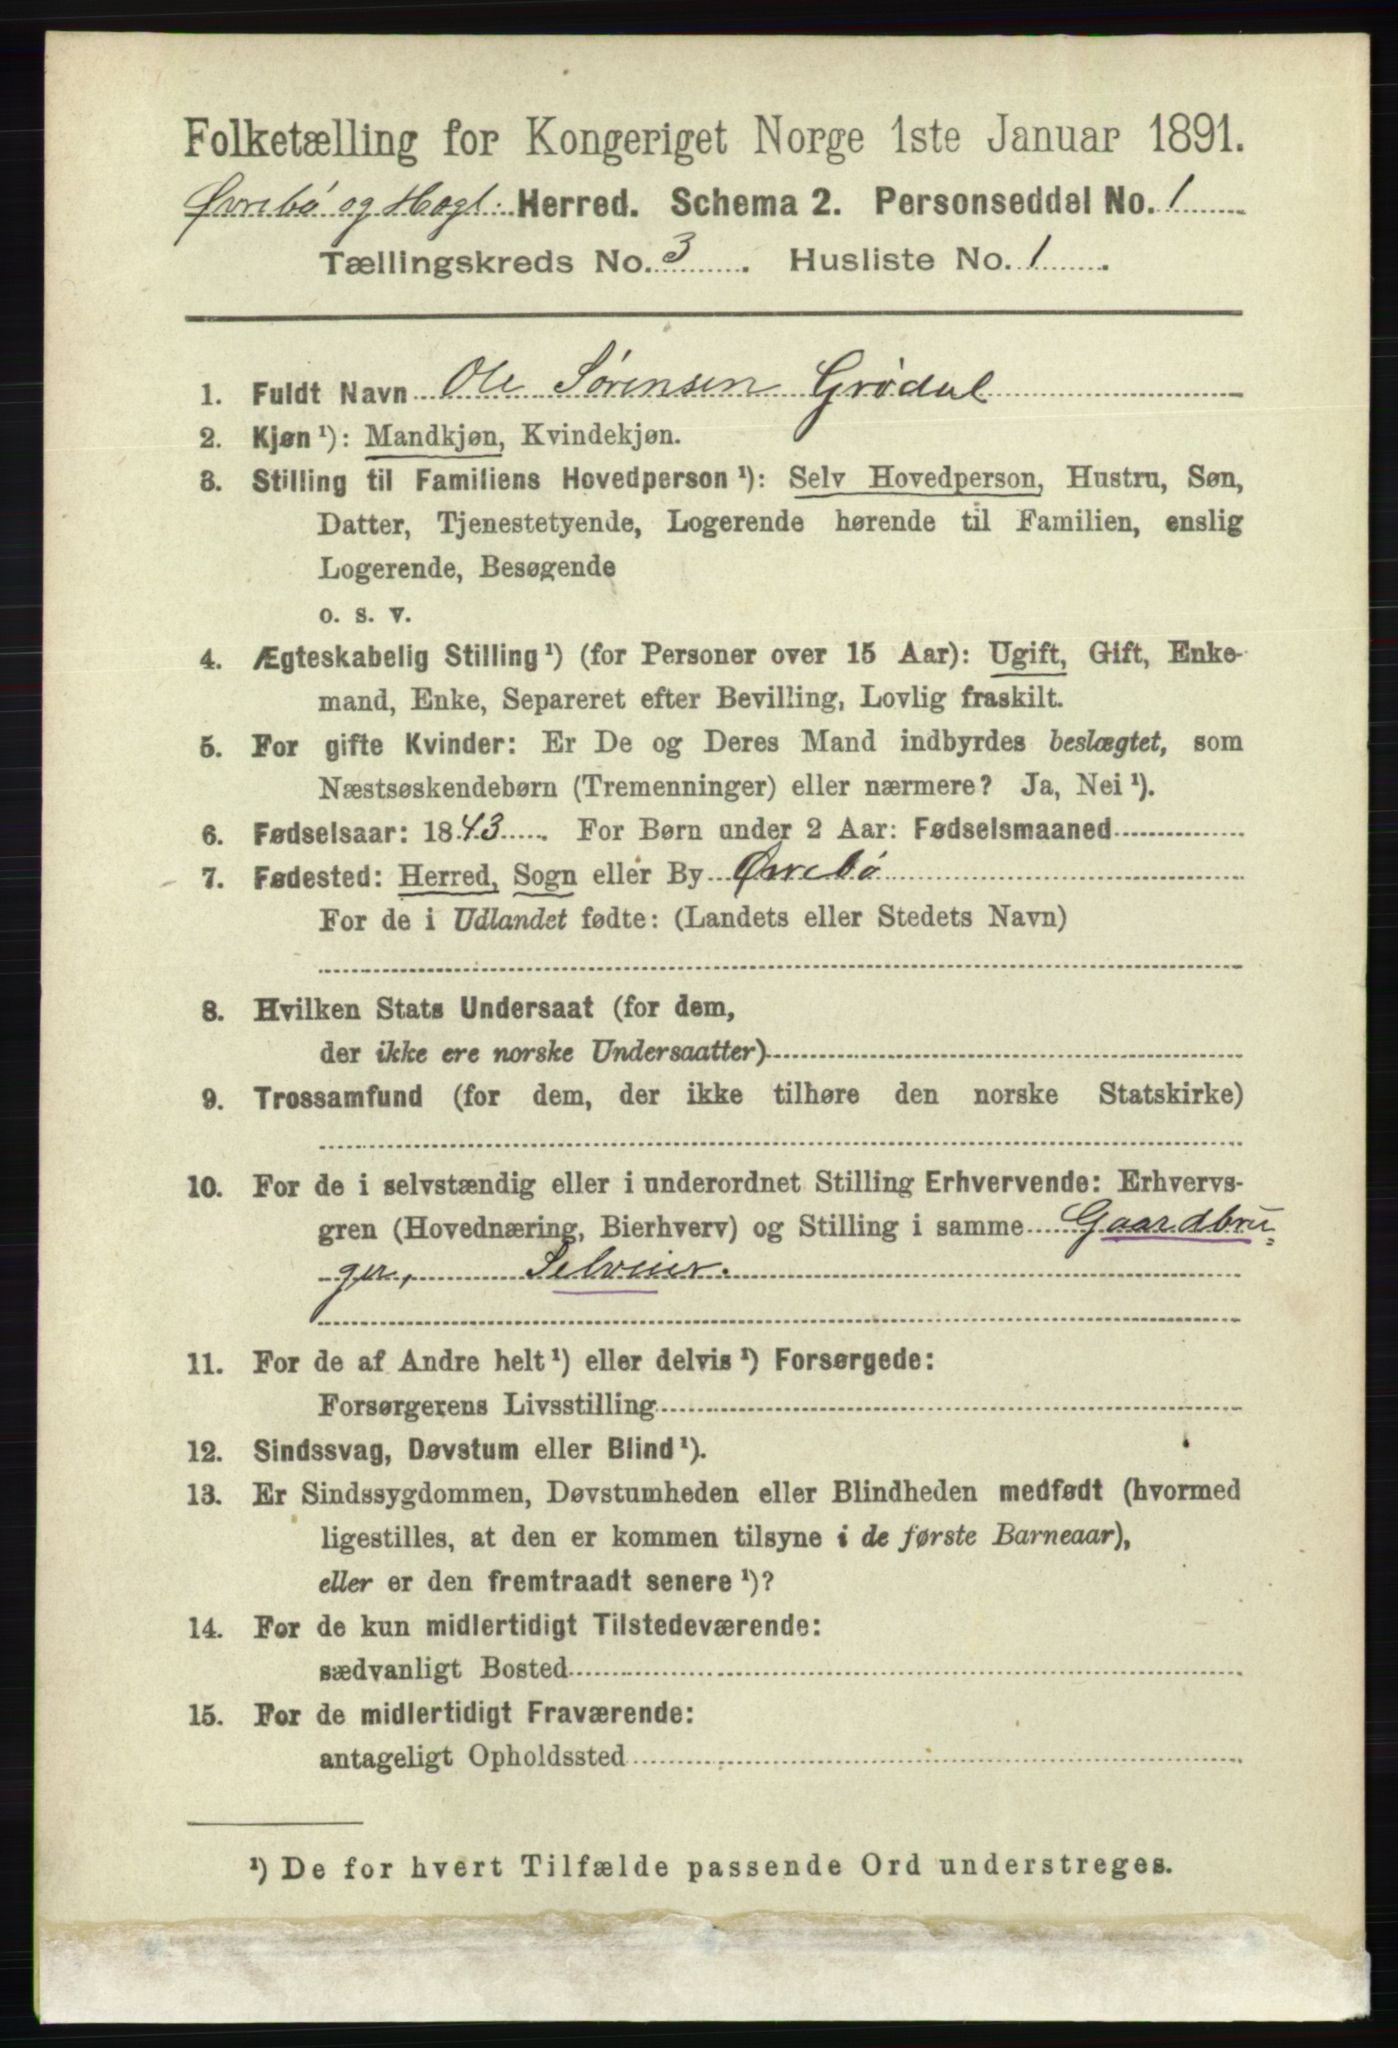 Folketælling for Kongeriget Norge 1ste Januar 1891.
Øvrebö og Hægl. Herred. Schema 2. Personseddel No. 1
Tællingskreds No. 3. Husliste No. 1.
1. Fuldt Navn Ole Sørensen Grödal
2. Kjøn¹): Mandkjøn, Kvindekjøn.
3. Stilling til Familiens Hovedperson¹): Selv Hovedperson, Hustru, Søn,
Datter, Tjenestetyende, Logerende hørende til Familien, enslig
Logerende, Besøgende
o. s. v.
4. Ægteskabelig Stilling¹) (for Personer over 15 Aar): Ugift, Gift, Enke-
mand, Enke, Separeret efter Bevilling, Lovlig fraskilt.
5. For gifte Kvinder: Er De og Deres Mand indbyrdes beslægtet, som
Næstsøskendebørn (Tremenninger) eller nærmere? Ja, Nei¹).
6. Fødselsaar: 1843. For Børn under 2 Aar: Fødselsmaaned
7. Fødested: Herred, Sogn eller By Øvrebö
For de i Udlandet fødte: (Landets eller Stedets Navn)
8. Hvilken Stats Undersaat (for dem,
der ikke ere norske Undersaatter)
9. Trossamfund (for dem, der ikke tilhøre den norske Statskirke)
10. For de i selvstændig eller i underordnet Stilling Erhvervende: Erhvervs-
gren (Hovednæring, Bierhverv) og Stilling i samme Gaardbru-
ger, Selveier.
11. For de af Andre helt¹) eller delvis¹) Forsørgede:
Forsørgerens Livsstilling
12. Sindssvag, Døvstum eller Blind¹).
13. Er Sindssygdommen, Døvstumheden eller Blindheden medfødt (hvormed
ligestilles, at den er kommen tilsyne i de første Barneaar),
eller er den fremtraadt senere¹)?
14. For de kun midlertidigt Tilstedeværende:
sædvanligt Bosted
15. For de midlertidigt Fraværende:
antageligt Opholdssted
¹) De for hvert Tilfælde passende Ord understreges.